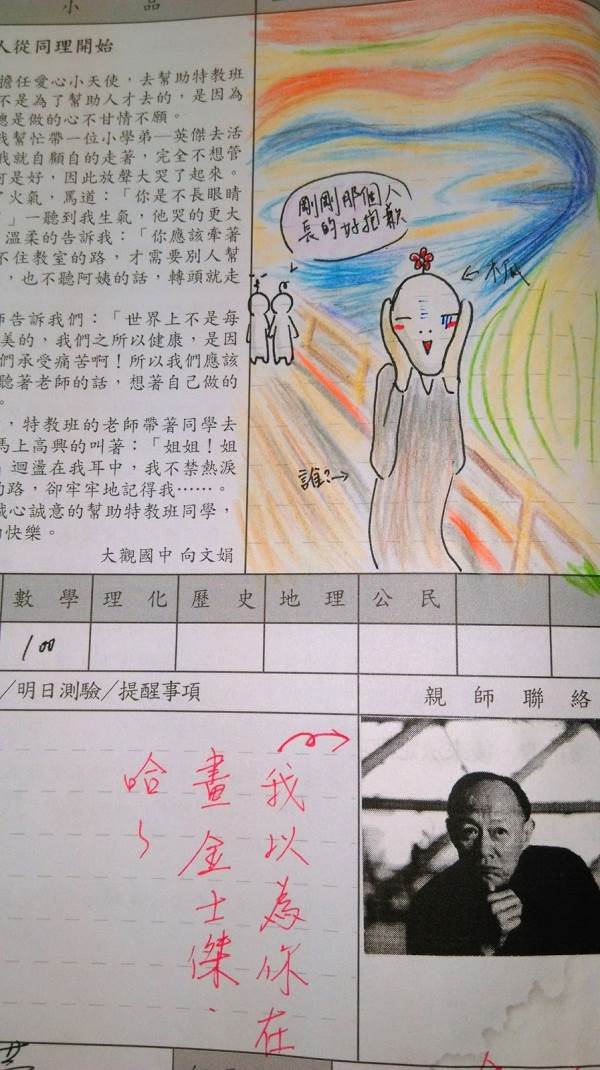 小 品
人從同理開始
擔任愛心小天使,去幫助特教班
不是為了幫助人才去的,是因為
總是做的心不甘情不願。
我幫忙帶一位小學弟—英傑去活
我就自顧自的走著,完全不想管
可是好,因此放聲大哭了起來。
了火氣,罵道:「你是不長眼睛
」一聽到我生氣,他哭的更大
溫柔的告訴我:「你應該牽著
不住教室的路,才需要別人幫
,也不聽阿姨的話,轉頭就走
師告訴我們:「世界上不是每
美的,我們之所以健康,是因
們承受痛苦啊!所以我們應該
聽著老師的話,想著自己做的
。
,特教班的老師帶著同學去
馬上高興的叫著:「姐姐!姐
」迴盪在我耳中,我不禁熱淚
的路,卻牢牢地記得我……。
誠心誠意的幫助特教班同學,
的快樂。
大觀國中 向文娟
剛剛那個人
長的好抱歉
誰?→
數學 理化 歷史 地理 公民
100
/明日測驗/提醒事項
親師聯絡
我以為你在
畫金士傑.
哈~